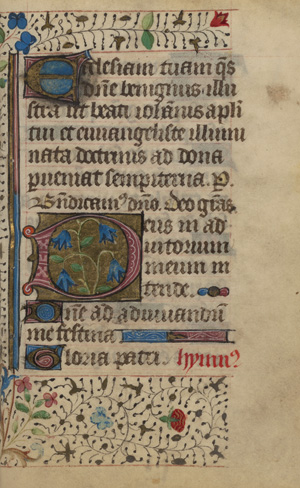 Ecclesiam tuam q̃s
dñe benignus illu
stra ut beati iohannis apl̃i
tui et euuangeliste illumi
nata doctrinis ad dona
perueniat sempiterna. P.
Bñdicam⁹ dño. Deo gr̃as
Deus in ad
iutorium
meum in
tende.
Dñe ad adiuuandũ
me festina
Gloria patri. hymn⁹